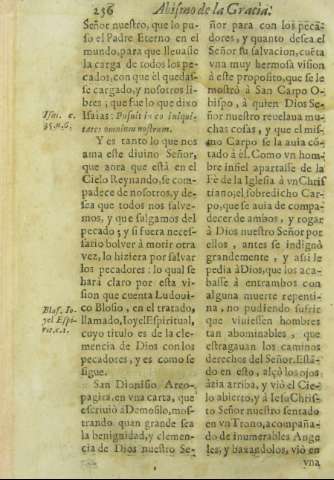 236 Abismo de la Gracia.
Señor nuestro, que lo pu-
so el Padre Eterno en el
mundo, para que lleuasse
la carga de todos los pe-
cados, con que èl quedas-
se cargado, y nosotros li-
bres; que fue lo que dixo
Isaias: Posuit in eo iniqui-
tates omnium nostrum.
Isai. c.
Y es tanto lo que nos
ama este diuino Señor,
que aora que està en el
Cielo Reynando, se com-
padece de nosotros, y de-
sea que todos nos salve-
mos, y que salgamos del
pecado; y si fuera neces-
sario bolver à morir otra
vez, lo hiziera por salvar
los pecadores: lo qual se
harà claro por esta vi-
sion que cuenta Ludoui-
co Blosio, en el tratado,
llamado, Ioyel Espiritual,
cuyo titulo es de la cle-
mencia de Dios con los
pecadores, y es como se
sigue.
Blos. Io-
yel Espi-
San Dionisio Areo-
pagita, en vna carta, que
escriuiò à Demofilo, mos-
trando quan grande sea
la benignidad, y clemen-
cia de Dios nuestro Se-
ñor para con los peca-
dores, y quanto desea el
Señor su salvacion, cuëta
vna muy hermosa vision
à este proposito, que se le
mostrò à San Carpo O-
bispo, à quien Dios Se-
ñor nuestro reuelaua mu-
chas cosas, y que el mis-
mo Carpo se la auia cõ-
tado à èl. Como vn hom-
bre infiel apartasse de la
Fè de la Iglesia à vn Chris
tiano, el sobredicho Car-
po, que se auia de compa-
decer de ambos, y rogar
à Dios nuestro Señor por
ellos, antes se indignò
grandemente, y assi le
pedia à Dios, que los aca-
basse à entrambos con
alguna muerte repenti-
na, no pudiendo sufrir
que viuiessen hombres
tan abominables, que
estragauan los caminos
derechos del Señor. Estã-
do en esto, alçò los ojos
àzia arriba, y viò el Cie-
lo abierto, y à Iesu Chris-
to Señor nuestro sentado
en vn Trono, acompaña-
do de inumerables Ange
les, y baxandolos, viò en
vna